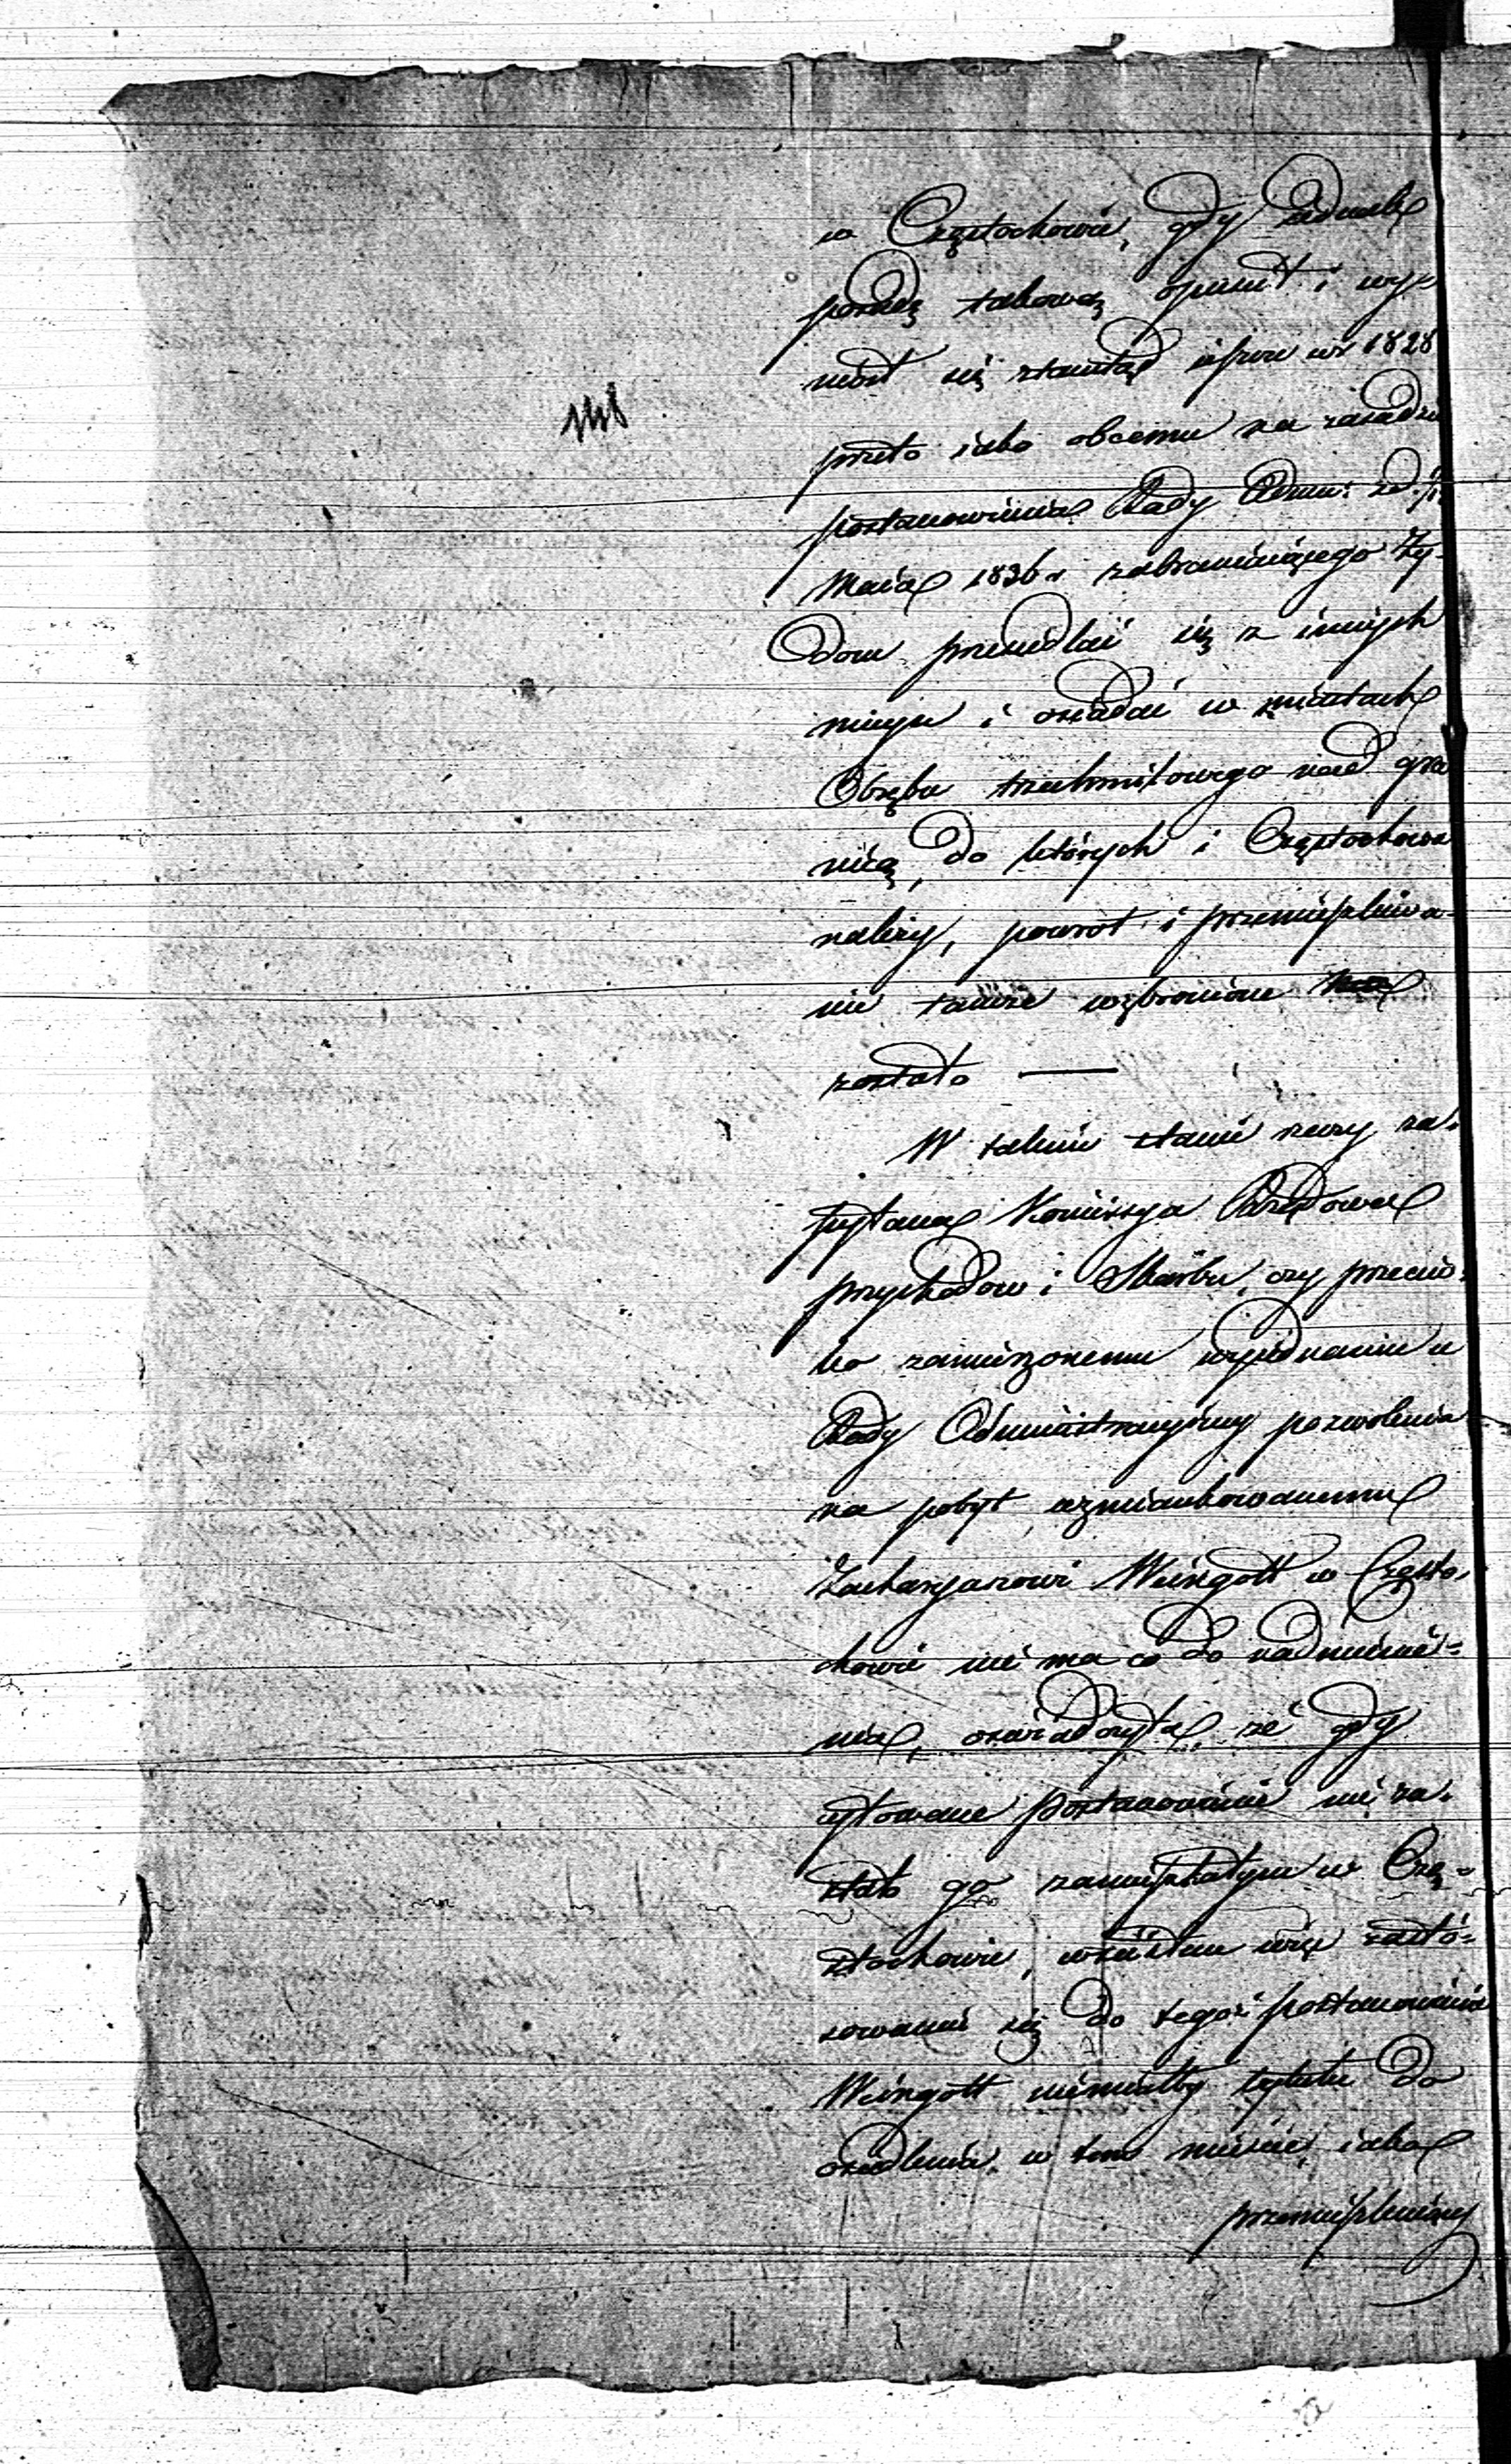 w Częstochowie, gdy jednak
posadę takową opuścił i wy-
niósł się ztamtąd ieszcze w r 1828
przeto iako obcemu na zasadzie
postanowienia Rady Admin: z d.
Maia 1836 r zabraniaiącego Ży-
dom przesiedlać się z innych
mieysc i osiadać w miastach
Obrębu trzechmilowego nad gra
nicą, do których i Częstochowa
należy, powrót i przemieszkiwa-
nie tamże wzbronione
zostało —
W takim stanie rzeczy za-
pytana Kommissya Rządowa
Przychodów i Skarbu, czy przeciw-
ko zamierzonemu wyiednaniu u
Rady Administracyiney pozwolenia
na pobyt wzmiankowanemu
Zacharyaszowi Weingott w Często-
chowie nie ma co do nadmienie-
nia, oświadczyła, że gdy
cytowane postanowienie nie za-
stało go zamieszkałym w Czę-
stochowie, w ścisłem więc zastó-
sowaniu się do tegoż postanowienia
Weingott niemiałby tytułu do
osiedlenia w tem mieście, iako
przemieszkuiący